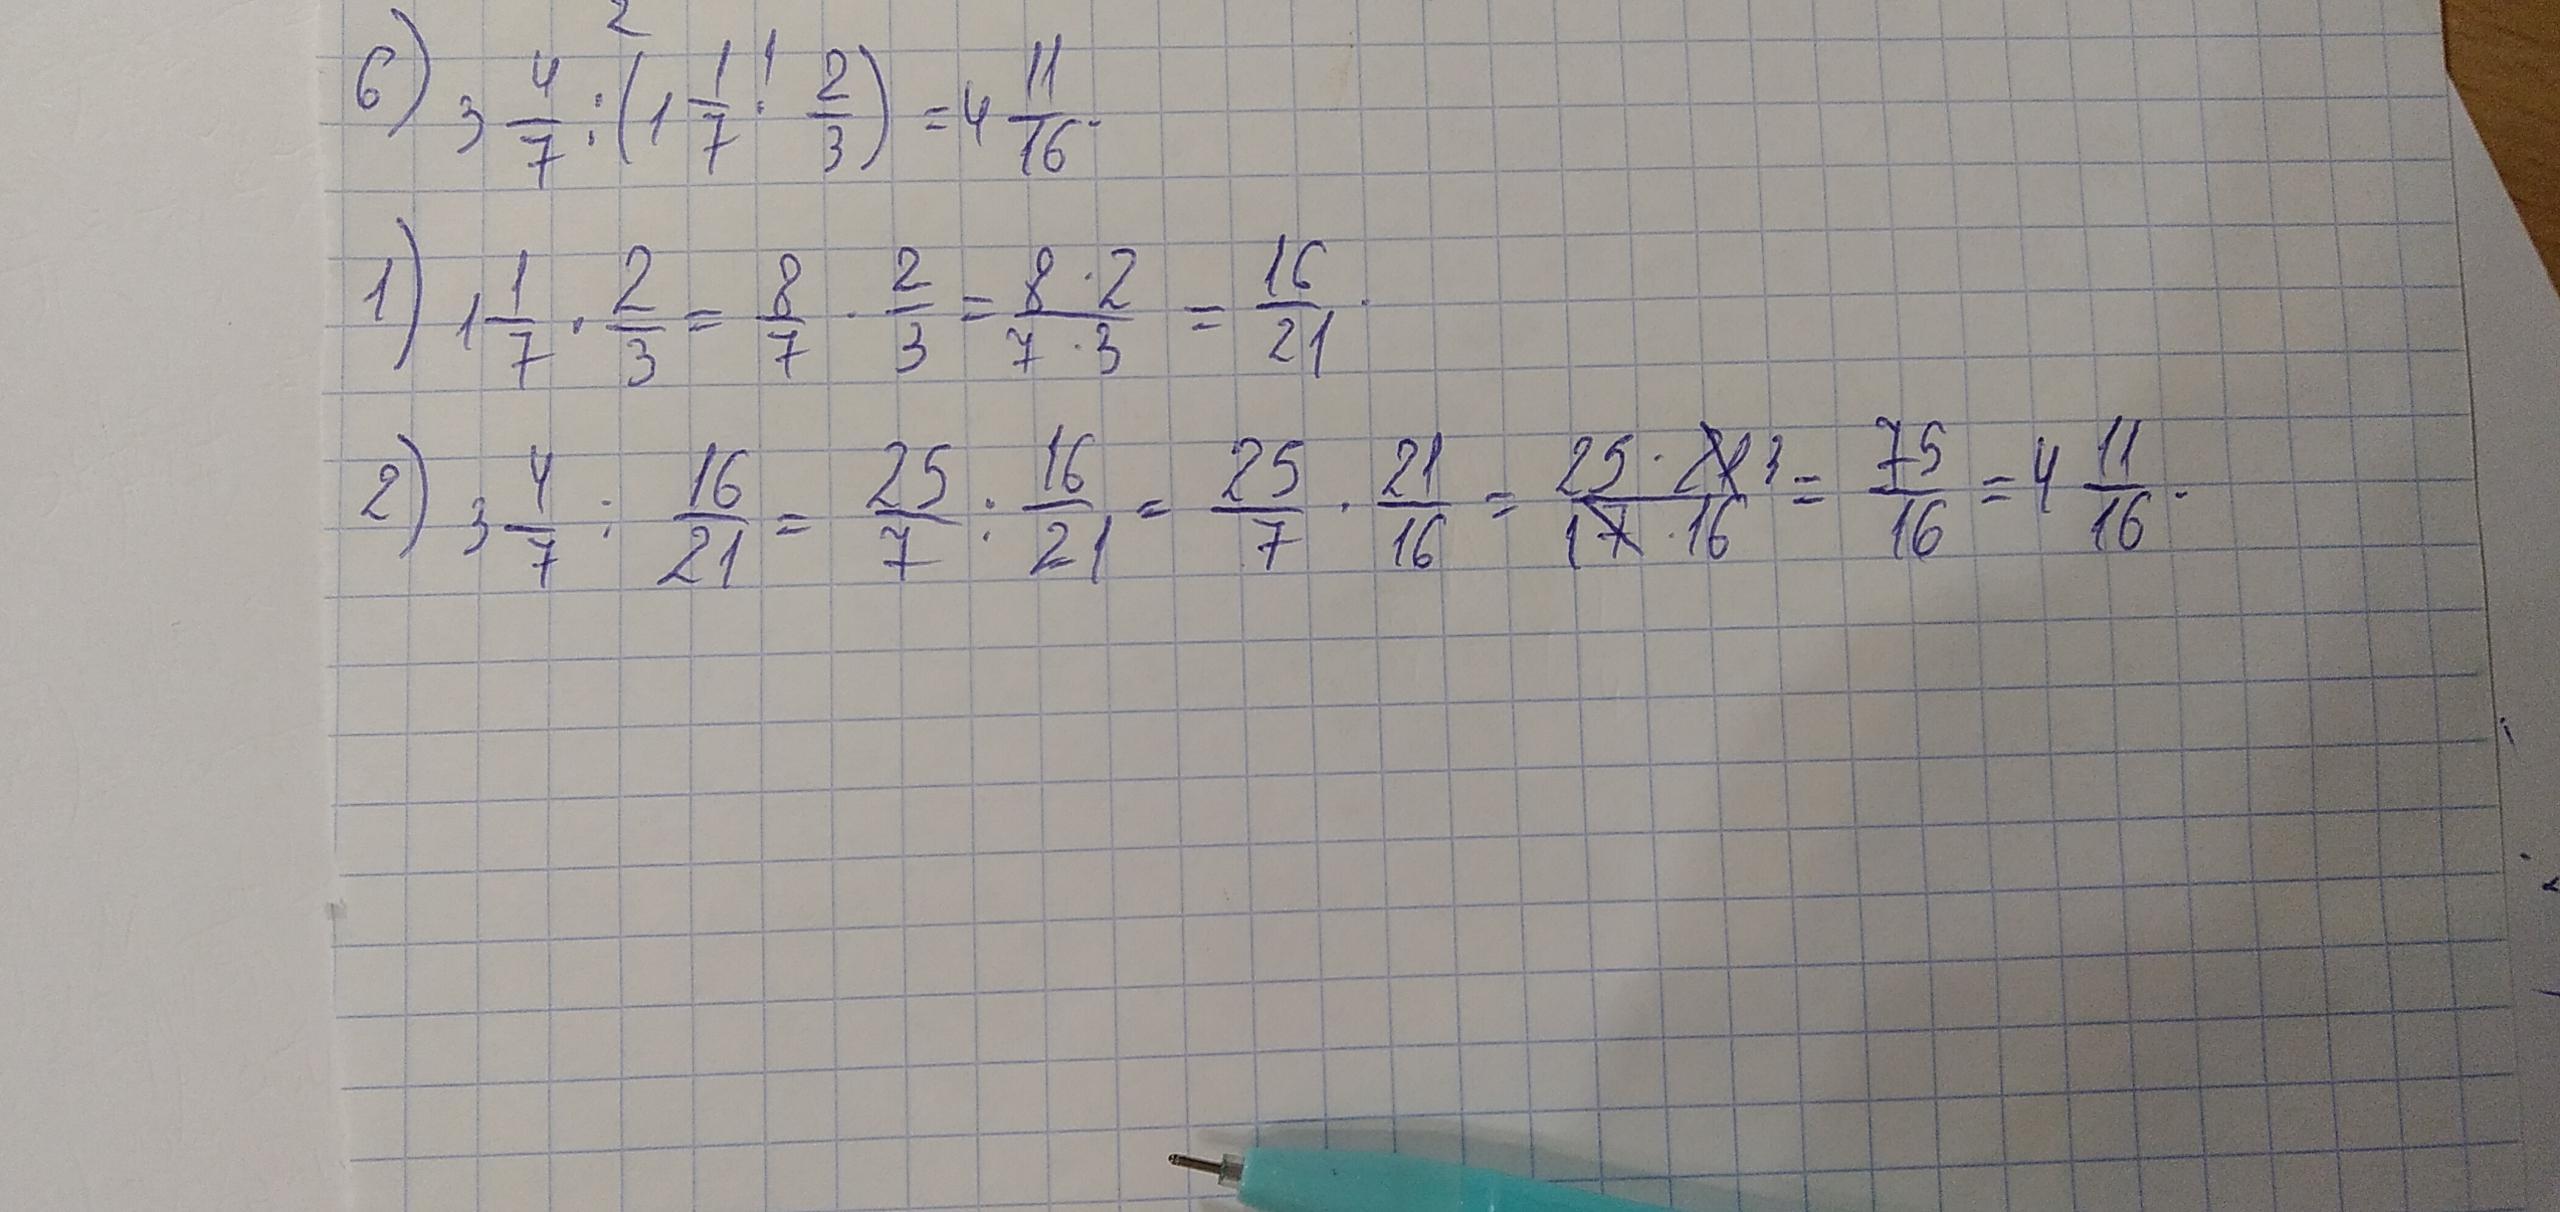 2 1
6) 3 4/7 : (1 1/7 · 2/3) = 4 11/16.
1) 1 1/7 · 2/3 = 8/7 · 2/3 = 8 · 2/7 · 3 = 16/21.
2) 3 4/7 : 16/21 = 25/7 : 16/21 = 25/7 · 21/16 = 25 · 21 3/1 7 · 16 = 75/16 = 4 11/16.